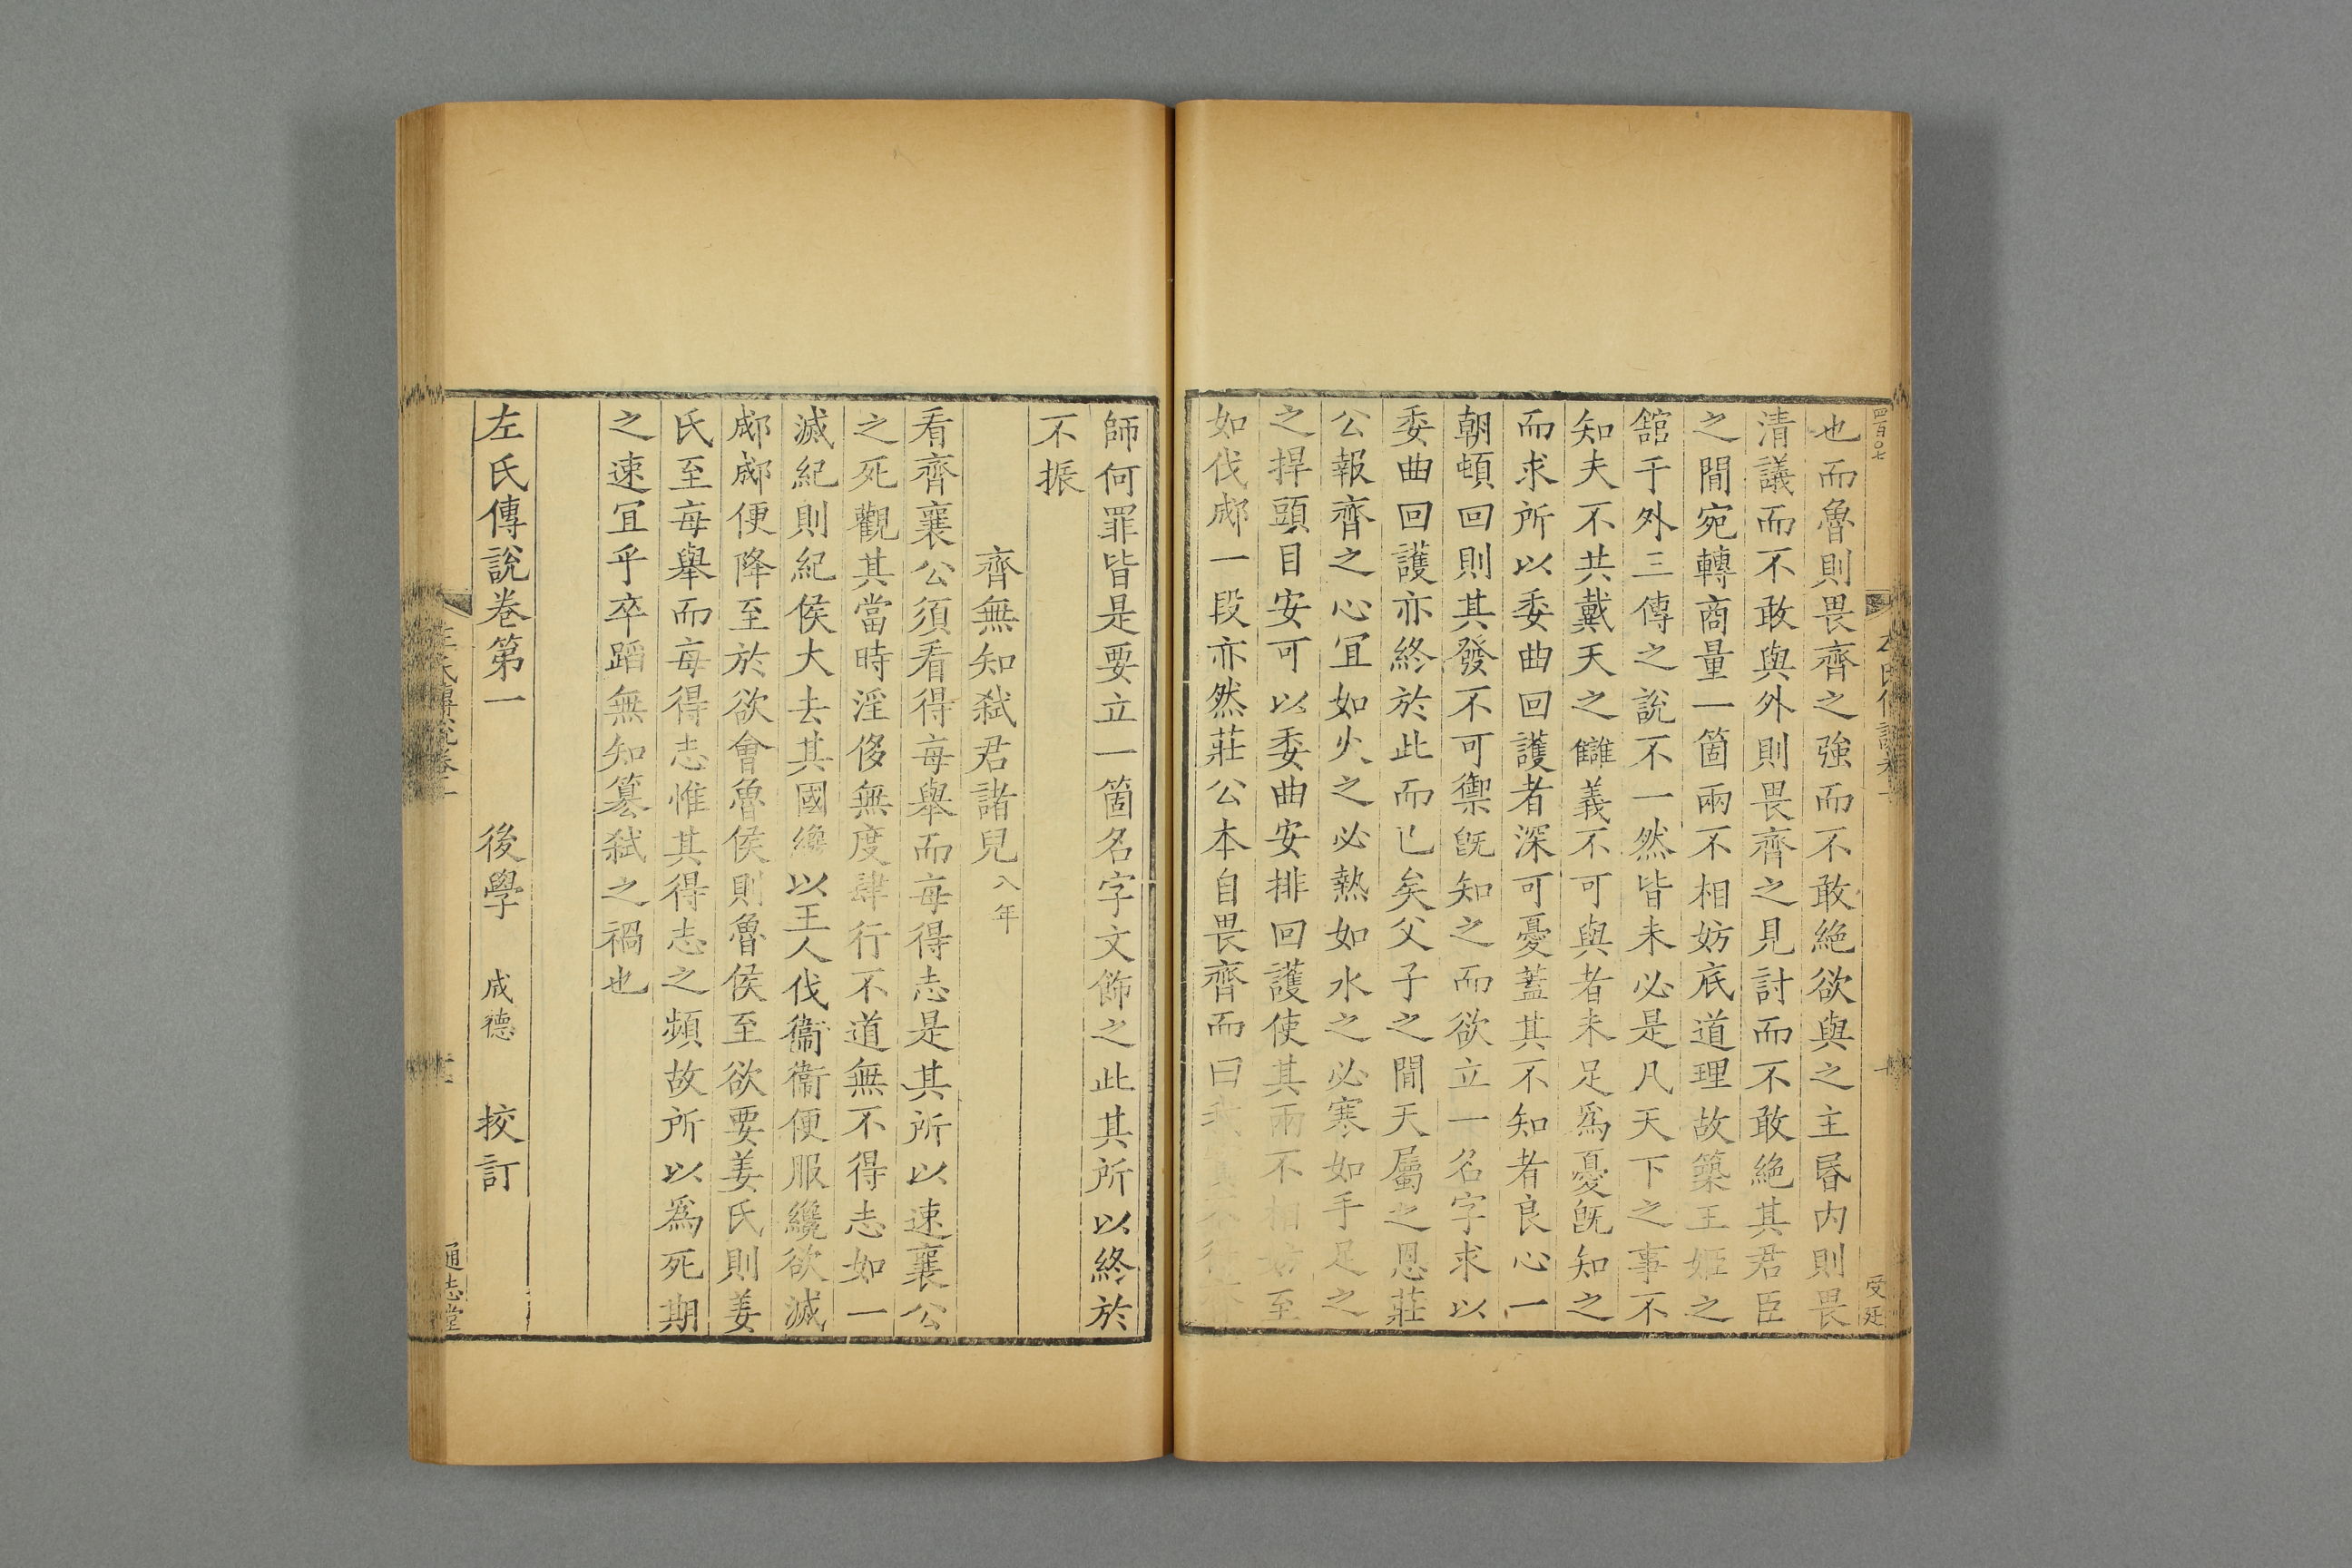 四百〇七
也而魯則畏齊之強而不敢絕欲與之主昬內則畏
清議而不敢與外則畏齊之見討而不敢絕其君臣
之間宛轉商量一箇兩不相妨底道理故築王姬之
舘于外三傳之說不一然皆未必是凡天下之事不
知夫不共戴天之讎義不可與者未足爲憂旣知之
而求所以委曲回護者深可憂蓋其不知者良心一
朝頓回則其發不可禦旣知之而欲立一名字求以
委曲回護亦終於此而已矣父子之間天屬之恩莊
公報齊之心冝如火之必熱如水之必寒如手足之
之捍頭目安可以委曲安排回護使其兩不相妨至
如伐郕一段亦然莊公本自畏齊而曰我
師何罪皆是要立一箇名字文飾之此其所以終於
不振
齊無知弒君諸兒八年
看齊襄公須看得每舉而每得志是其所以速襄公
之死觀其當時淫侈無度肆行不道無不得志如一
滅紀則紀侯大去其國纔以王人伐衞衞便服纔欲滅
郕郕便降至於欲會魯侯則魯侯至欲要姜氏則姜
氏至每舉而每得志惟其得志之頻故所以爲死期
之速冝乎卒蹈無知簒弒之禍也
左氏傳說卷第一 後學 成德 挍訂
左氏傳說卷一
通志堂